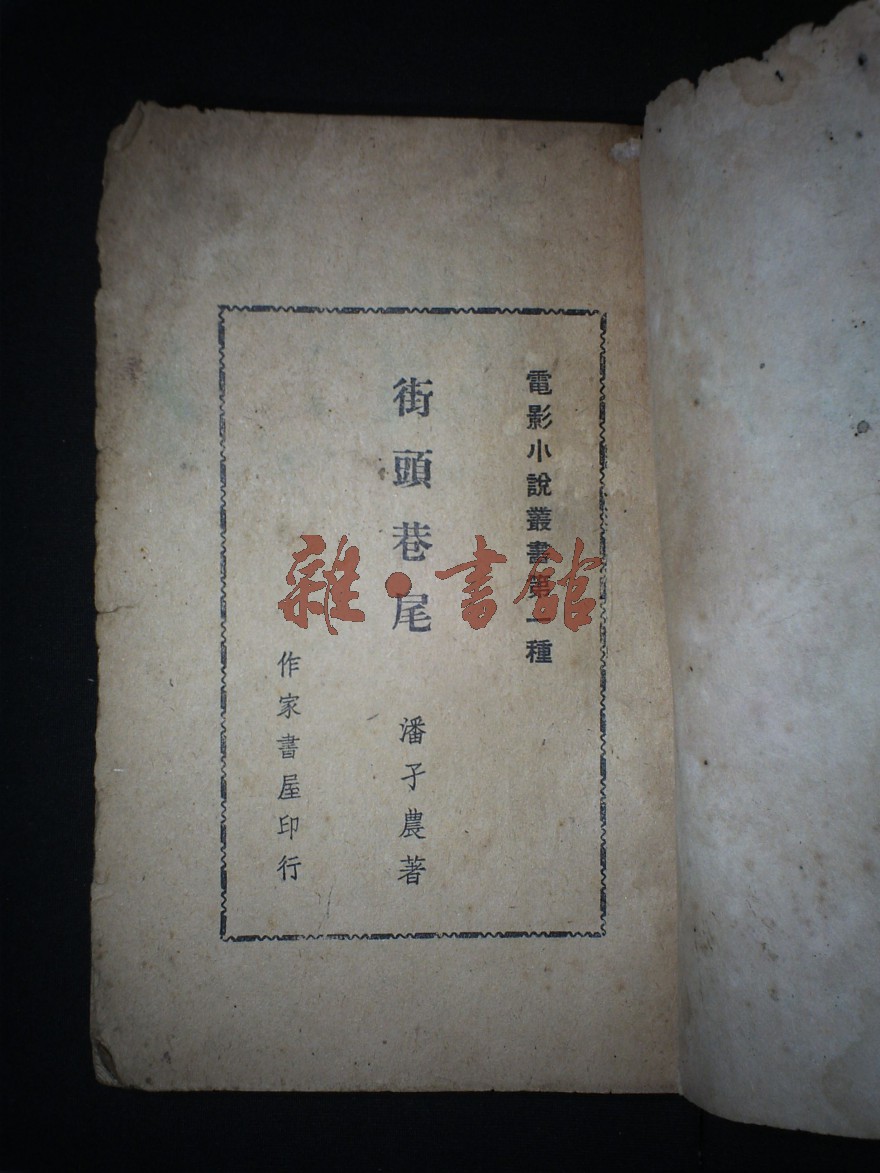 電影小說叢書第一種
街頭巷尾
潘孑農著
作家書屋印行
雜·書館